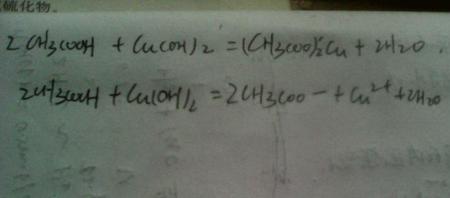 硫化物。
2CH3COOH + Cu(OH)2 = (CH3COO)2Cu + 2H2O.
2CH3COOH + Cu(OH)2 = 2CH3COO- + Cu2+ + 2H2O